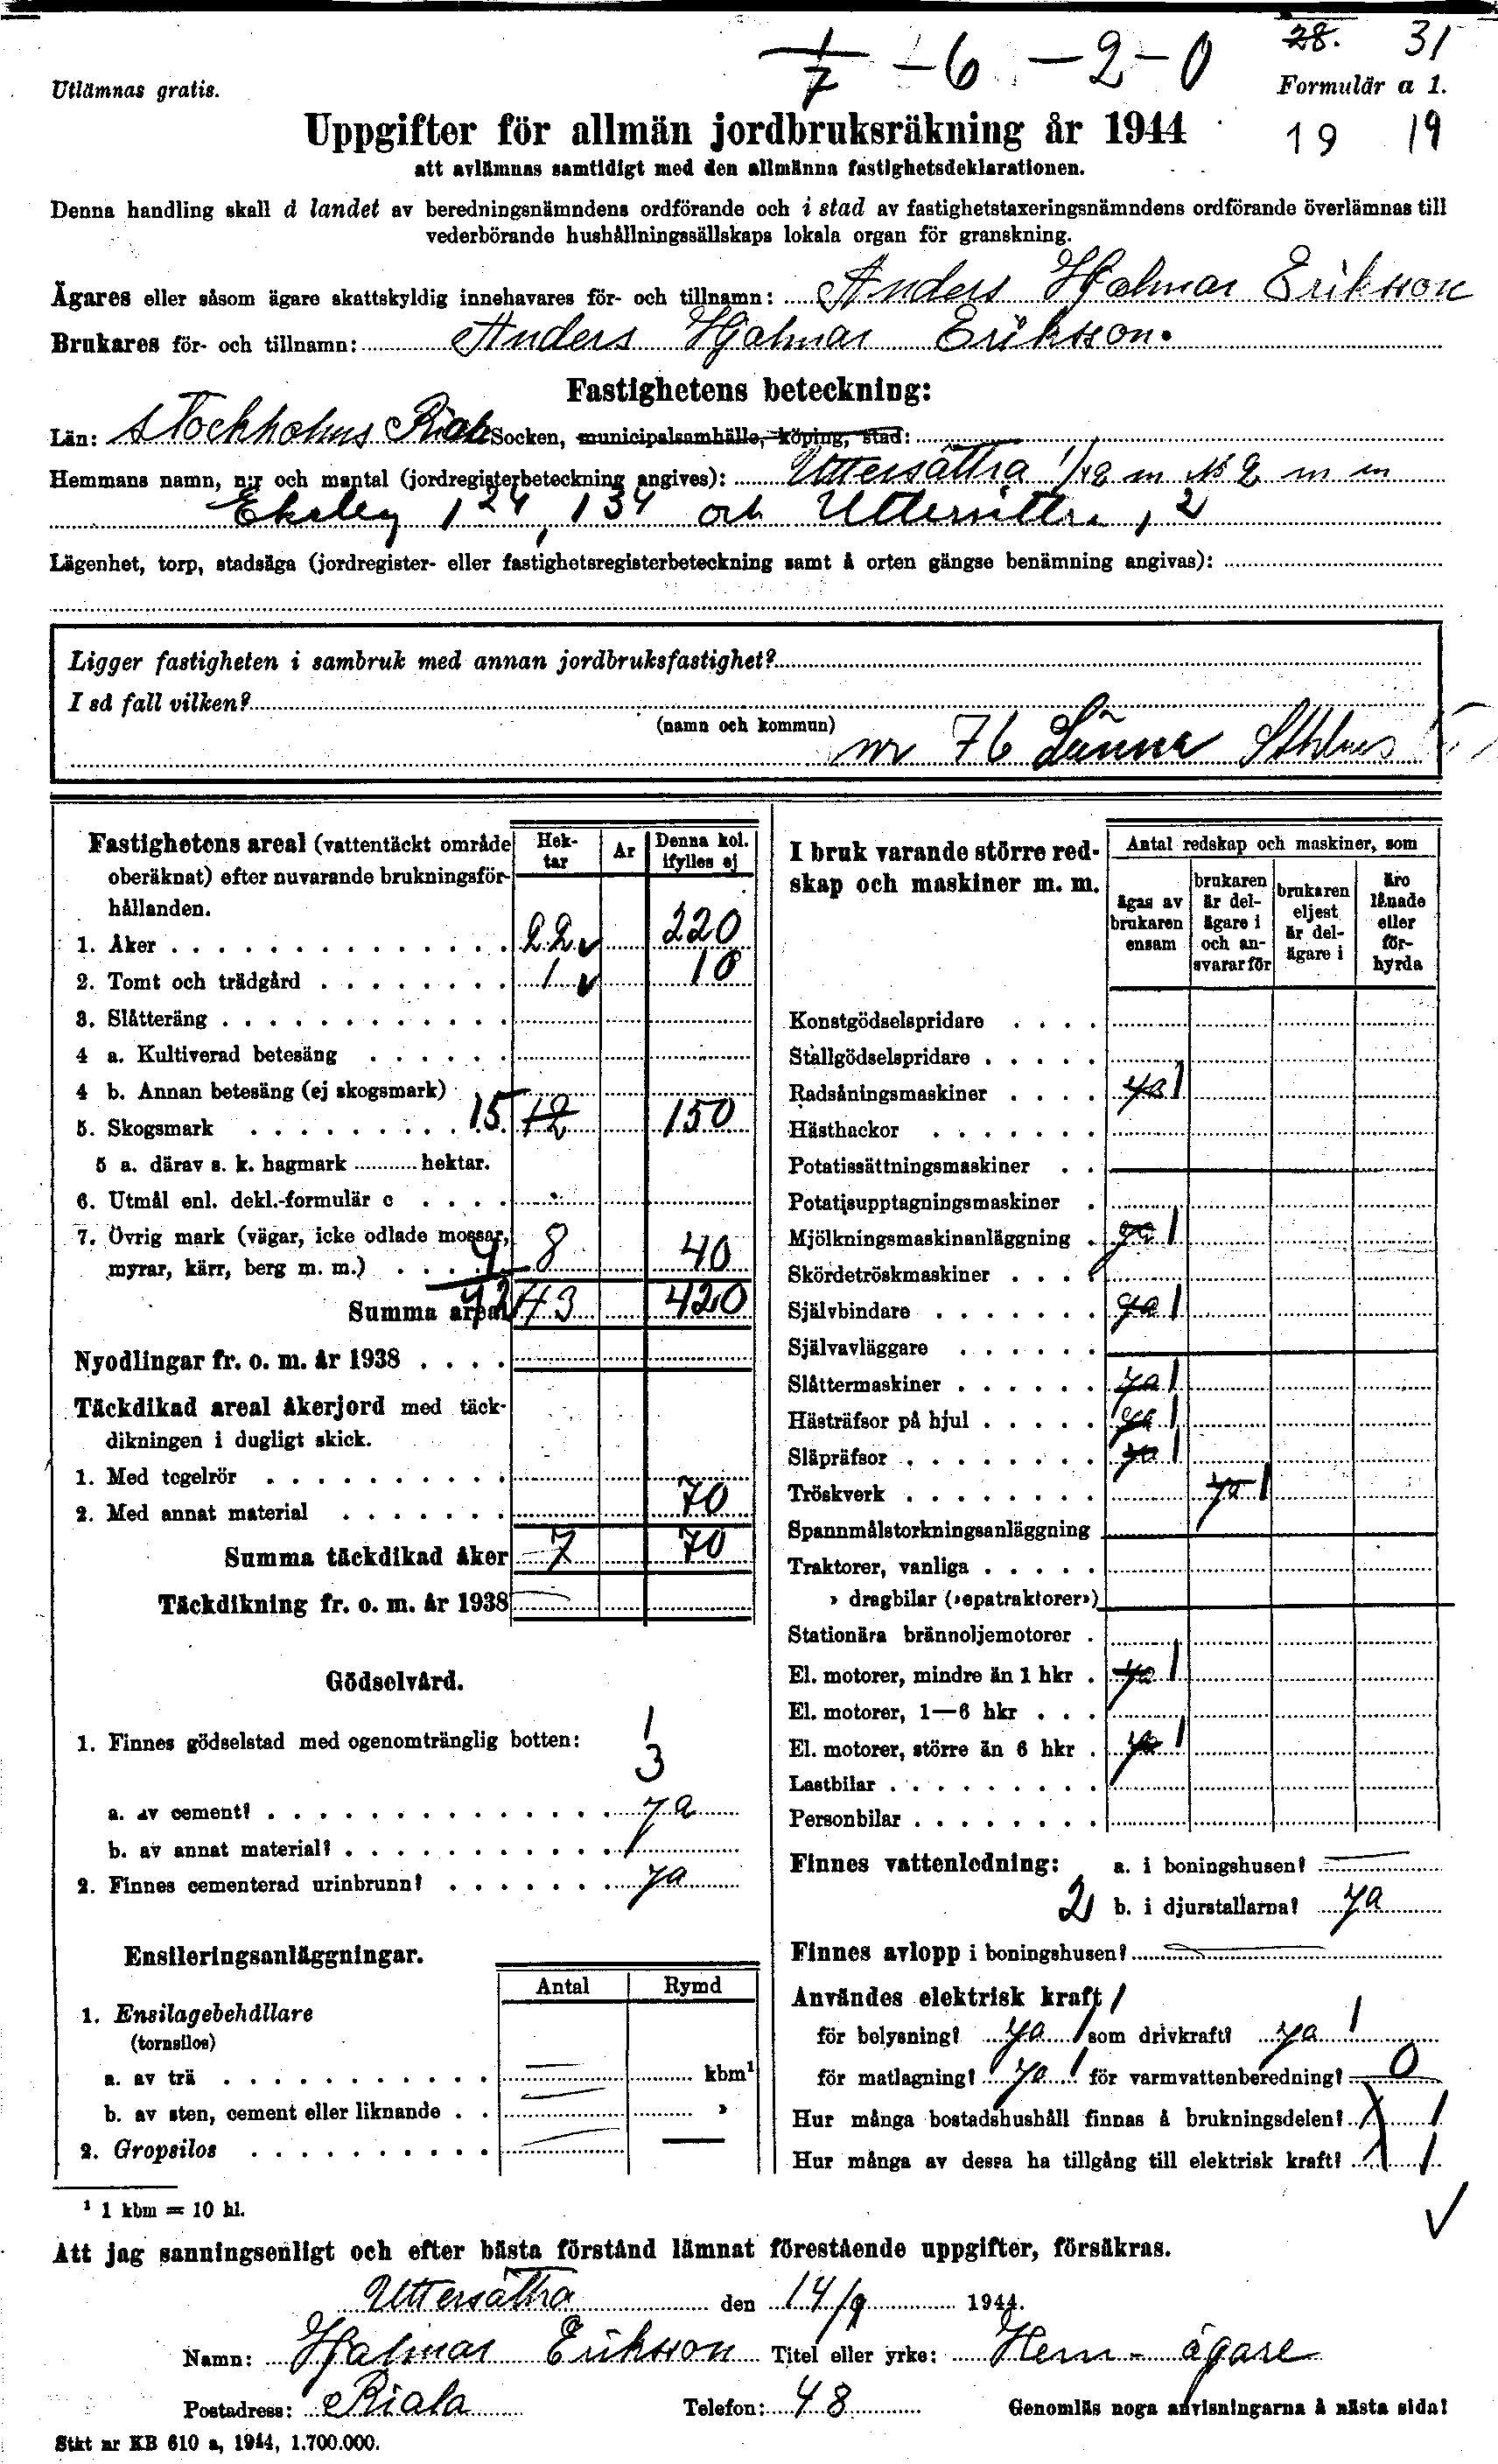 1/7 - 6 - 2 - 0 28. 31
Utlämnas gratis. Formulär a 1.
Uppgifter för allmän jordbruksräkning år 1944 19 19
att avlämnas samtidigt med den allmänna fastighetsdeklarationen.
Denna handling skall å landet av beredningsnämndens ordförande och i stad av fastighetstaxeringsnämndens ordförande överlämnas till
vederbörande hushållningssällskaps lokala organ för granskning.
Ägares eller såsom ägare skattskyldig innehavares för- och tillnamn: Anders Hjalmar Erikson
Brukares för- och tillnamn: Anders Hjalmar Erikson.
Fastighetens beteckning:
Län: Stockholms Riala Socken, municipalsamhälle, köping, stad:
Hemmans namn, n:r och mantal (jordregisterbeteckning angives): Uttersättra 1/42 m № 2 m m
Ekeby 1 24, 1 34 och Uttersättra 1 2
Lägenhet, torp, stadsäga (jordregister- eller fastighetsregisterbeteckning samt å orten gängse benämning angivas):
Ligger fastigheten i sambruk med annan jordbruksfastighet?
I så fall vilken?
(namn och kommun)
nr 76 Länna Sthlms
Fastighetens areal (vattentäckt område oberäknat) efter nuvarande brukningsförhållanden.
Hektar Ar Denna kol. ifylles ej
1. Åker 22 220
2. Tomt och trädgård 1 10
3. Slåtteräng
4 a. Kultiverad betesäng
4 b. Annan betesäng (ej skogsmark)
5. Skogsmark 15 12 150
5 a. därav s. k. hagmark hektar.
6. Utmål enl. dekl.-formulär c
7. Övrig mark (vägar, icke odlade mossar,
myrar, kärr, berg m. m.) 4 8 40
Summa areal 42 43 420
Nyodlingar fr. o. m. år 1938
Täckdikad areal åkerjord med täck-
dikningen i dugligt skick.
1. Med tegelrör
2. Med annat material 70
Summa täckdikad åker 7 70
Täckdikning fr. o. m. år 1938 —
Gödselvård.
1. Finnes gödselstad med ogenomtränglig botten: 1
3
a. av cement? ja
b. av annat material?
2. Finnes cementerad urinbrunn? ja
Ensileringsanläggningar.
Antal Rymd
1. Ensilagebehållare
(tornsilos)
a. av trä — kbm¹
b. av sten, cement eller liknande — »
2. Gropsilos — —
I bruk varande större redskap och maskiner m. m.
Antal redskap och maskiner, som
ägas av brukaren ensam
brukaren är delägare i och ansvarar för
brukaren eljest är delägare i
äro lånade eller förhyrda
Konstgödselspridare
Stallgödselspridare
Radsåningsmaskiner ja 1
Hästhackor
Potatissättningsmaskiner
Potatisupptagningsmaskiner
Mjölkningsmaskinanläggning ja 1
Skördetröskmaskiner
Självbindare ja 1
Självavläggare
Slåttermaskiner ja 1
Hästräfsor på hjul ja 1
Släpräfsor ja 1
Tröskverk ja 1
Spannmålstorkningsanläggning
Traktorer, vanliga
» dragbilar (»epatraktorer»)
Stationära brännoljemotorer
El. motorer, mindre än 1 hkr ja 1
El. motorer, 1—6 hkr
El. motorer, större än 6 hkr ja 1
Lastbilar
Personbilar
Finnes vattenledning: a. i boningshusen? —
2 b. i djurstallarna? ja
Finnes avlopp i boningshusen? —
Användes elektrisk kraft 1
för belysning? ja 1 som drivkraft? ja 1
för matlagning? ja 1 för varmvattenberedning? — 0
Hur många bostadshushåll finnas å brukningsdelen? 1
Hur många av dessa ha tillgång till elektrisk kraft? 1
¹ 1 kbm = 10 hl.
Att jag sanningsenligt och efter bästa förstånd lämnat förestående uppgifter, försäkras.
Uttersättra den 14/9 1944.
Namn: Hjalmar Erikson Titel eller yrke: Hem-ägare
Postadress: Riala Telefon: 48 Genomläs noga anvisningarna å nästa sida!
Stkt nr KB 610 a, 1944, 1.700.000.